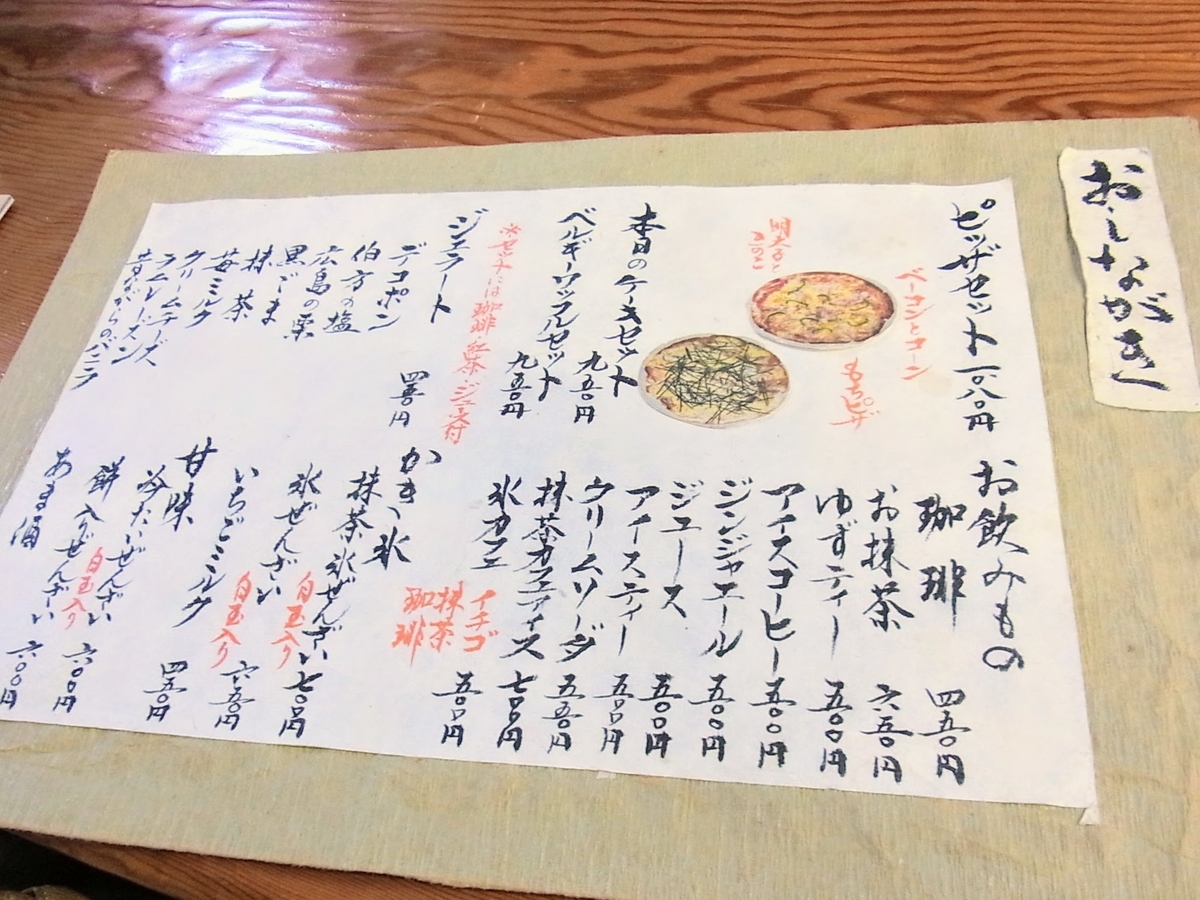 おしながき
ピッザセット 一〇八〇円
ベーコンとコーン
もちピザ
明太子と
きのこ
本日のケーキセット 九五〇円
ベルギーワッフルセット 九五〇円
※セットには珈琲・紅茶・ジュース付
ジェラート
デコポン 四五〇円
伯方の塩
広島の栗
黒ごま
抹茶
苺ミルク
クリームチーズ
ラムレーズン
昔ながらのバニラ
お飲みもの
珈琲 四五〇円
お抹茶 六五〇円
ゆずティー 五〇〇円
アイスコーヒー 五〇〇円
ジンジャエール 五〇〇円
ジュース 五〇〇円
アイスティー 五〇〇円
クリームソーダ 五五〇円
抹茶カフェアイス 七〇〇円
氷カフェ
かき氷 五〇〇円
イチゴ
抹茶
珈琲
抹茶氷ぜんざい 七〇〇円
氷ぜんざい 白玉入り
いちごミルク 白玉入り 六五〇円
甘味
冷たいぜんざい 白玉入り 四五〇円
餅入りぜんざい 六〇〇円
あま酒 六〇〇円